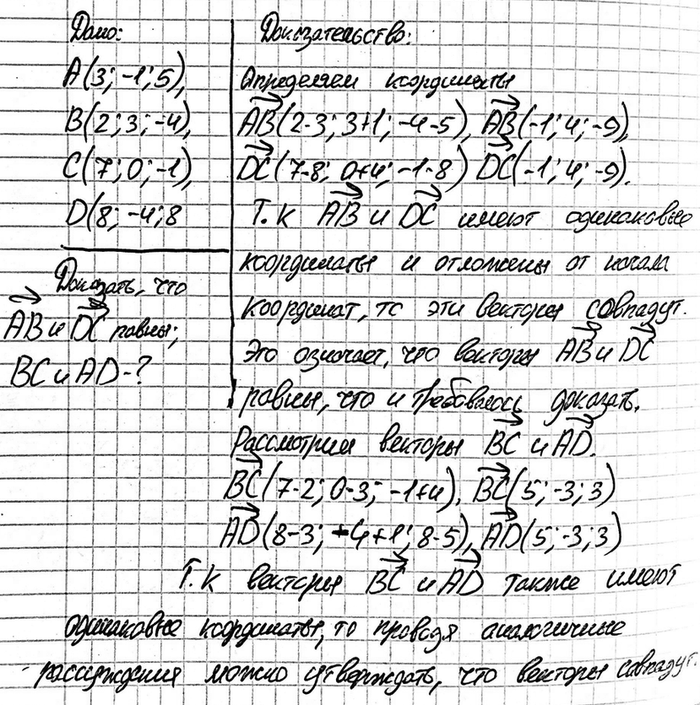 Дано:
A(3; -1; 5),
B(2; 3; -4),
C(7; 0; -1),
D(8; -4; 8
Доказать, что
AB и DC равны;
BC и AD - ?
Доказательство:
Определяем координаты
AB(2-3; 3+1; -4-5), AB(-1; 4; -9),
DC(7-8; 0+4; -1-8) DC(-1; 4; -9).
Т.к AB и DC имеют одинаковые
координаты и отложены от начала
координат, то эти векторы совпадут.
Это означает, что векторы AB и DC
равны, что и требовалось доказать.
Рассмотрим векторы BC и AD.
BC(7-2; 0-3; -1+4), BC(5; -3; 3)
AD(8-3; -4+1; 8-5), AD(5; -3; 3)
Т.к векторы BC и AD также имеют
одинаковые координаты, то проводя аналогичные
рассуждения можно утверждать, что векторы совпадут.